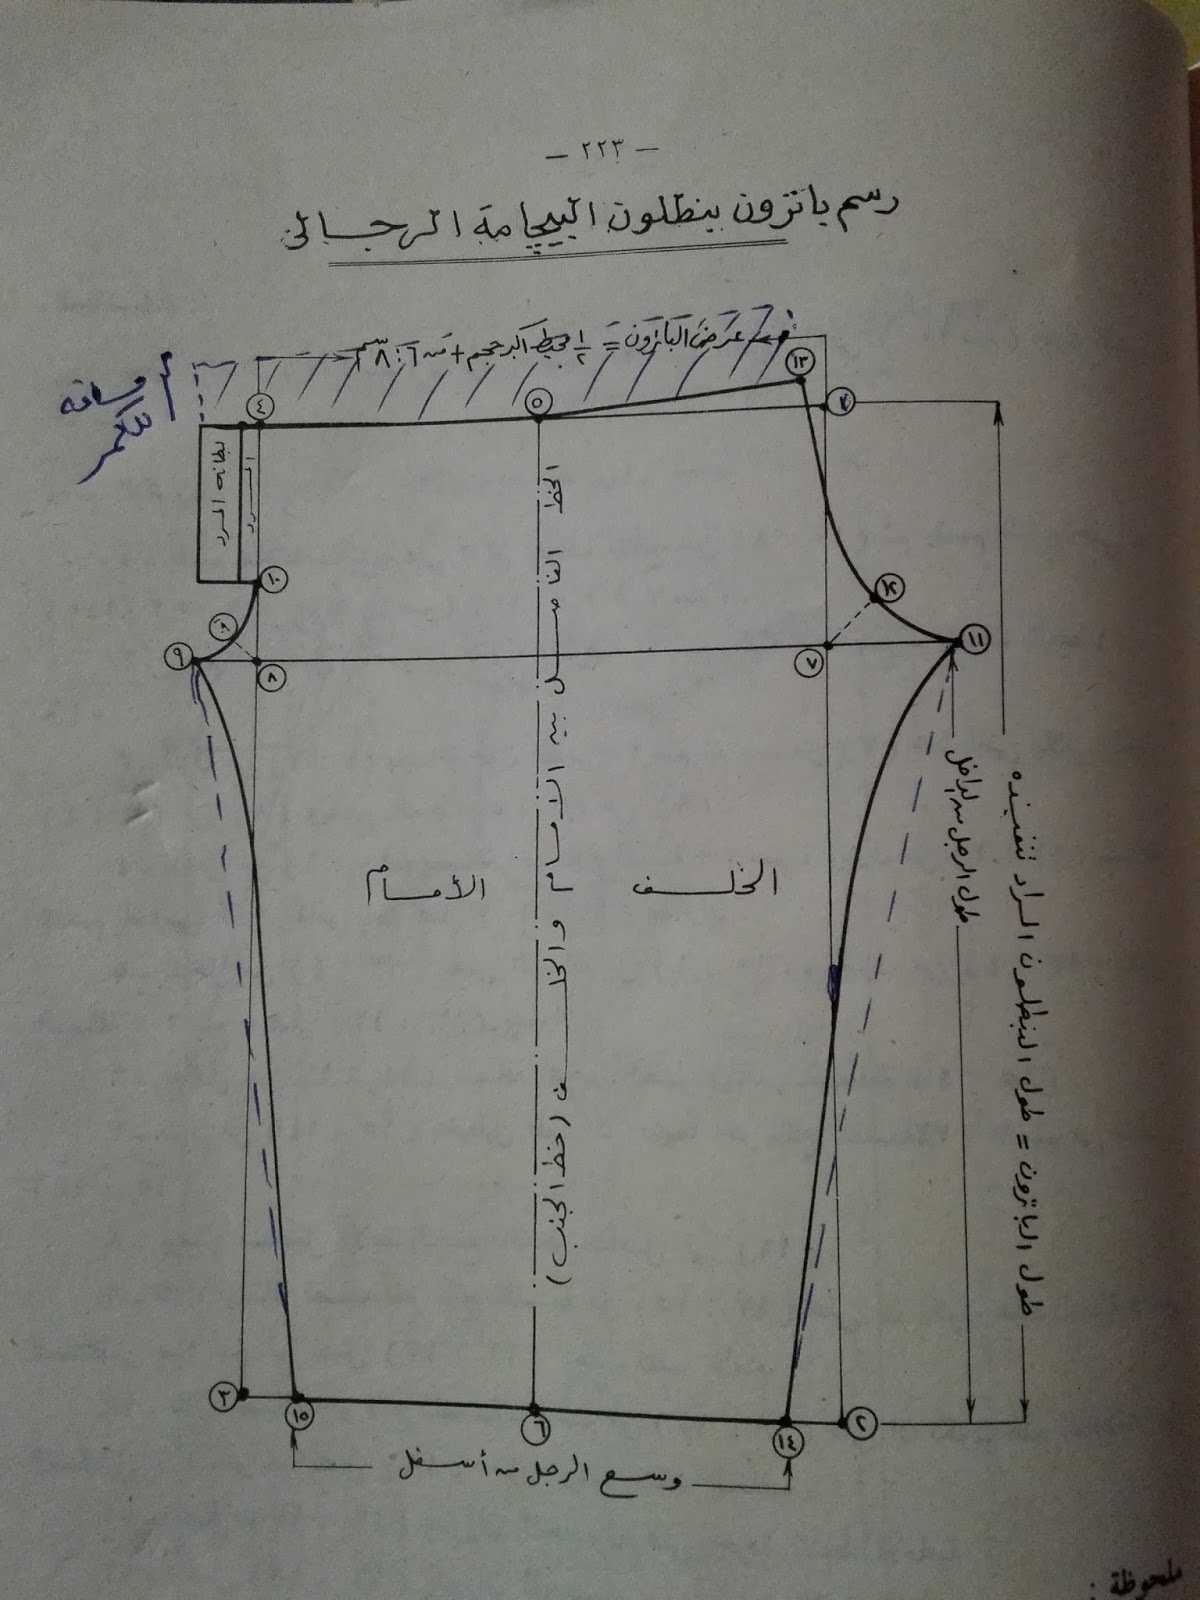 — ٢٢٣ —
رسم باترون بنطلون البيچامة الرجالى
عرض الباترون = ١/٢ محيط أكبر حجم + من ٦ : ٨ سم
مسافة
الكمر
٤
٥
١٣
بطانة المرد
المرد
١٠
٩
٨
٧
١١
الخط الفاصل بين الأمام والخلف (خط الجنب)
الأمام
الخلف
طول الرجل من الداخل
طول الباترون = طول البنطلون المراد تنفيذه
٣
١٥
٦
١٤
٢
وسع الرجل من أسفل
ملحوظة :